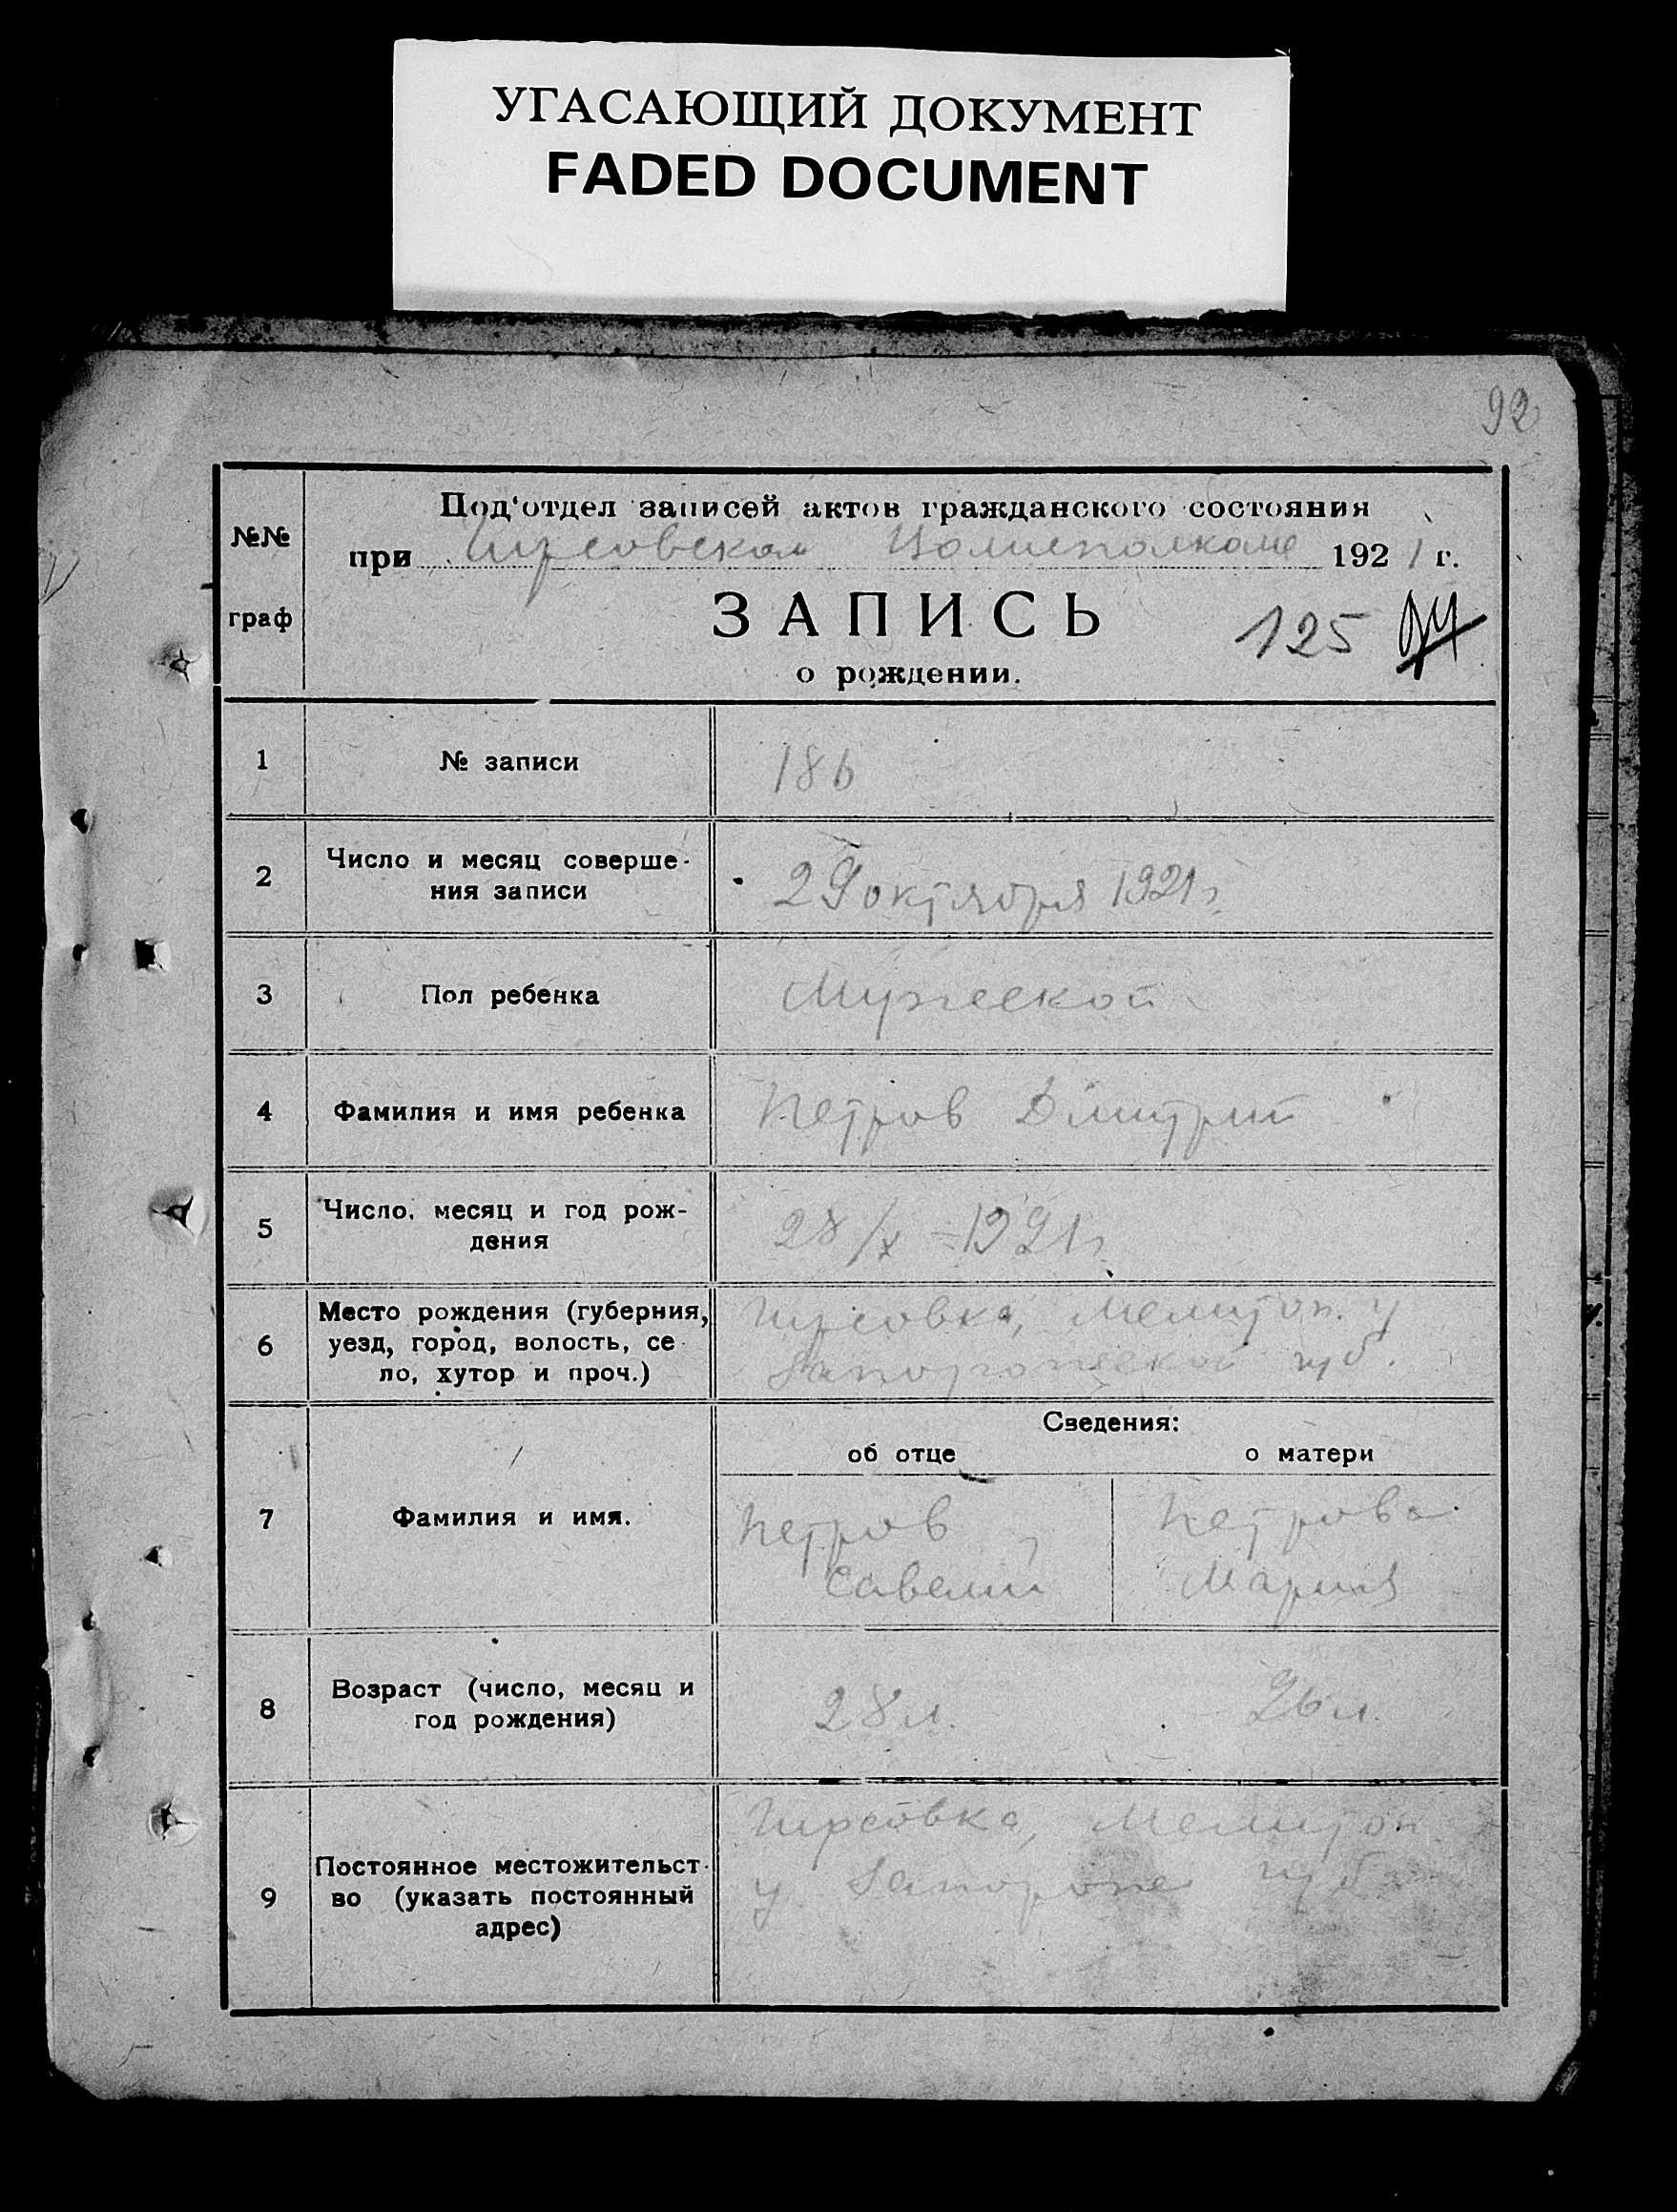 УГАСАЮЩИЙ ДОКУМЕНТ
FADED DOCUMENT
92
№№
граф
Под‘отдел записей актов гражданского состояния
при Гирсовском Волисполкоме 1921 г.
ЗАПИСЬ
125
о рождении.
1
№ записи
186
2
Число и месяц соверше-
ния записи
29 октября 1921 г.
3
Пол ребенка
Мужеской
4
Фамилия и имя ребенка
Петров Дмитрий
5
Число, месяц и год рож-
дения
28/X - 1921 г
6
Место рождения (губерния,
уезд, город, волость, се
ло, хутор и проч.)
Гирсовка, Мелитоп. у
Запорожской губ.
Сведения:
об отце
о матери
7
Фамилия и имя.
Петров
Савелий
Петрова
Мария
8
Возраст (число, месяц и
год рождения)
28 л.
26 л.
9
Постоянное местожительст-
во (указать постоянный
адрес)
Гирсовка, Мелитоп
у Запорож губ